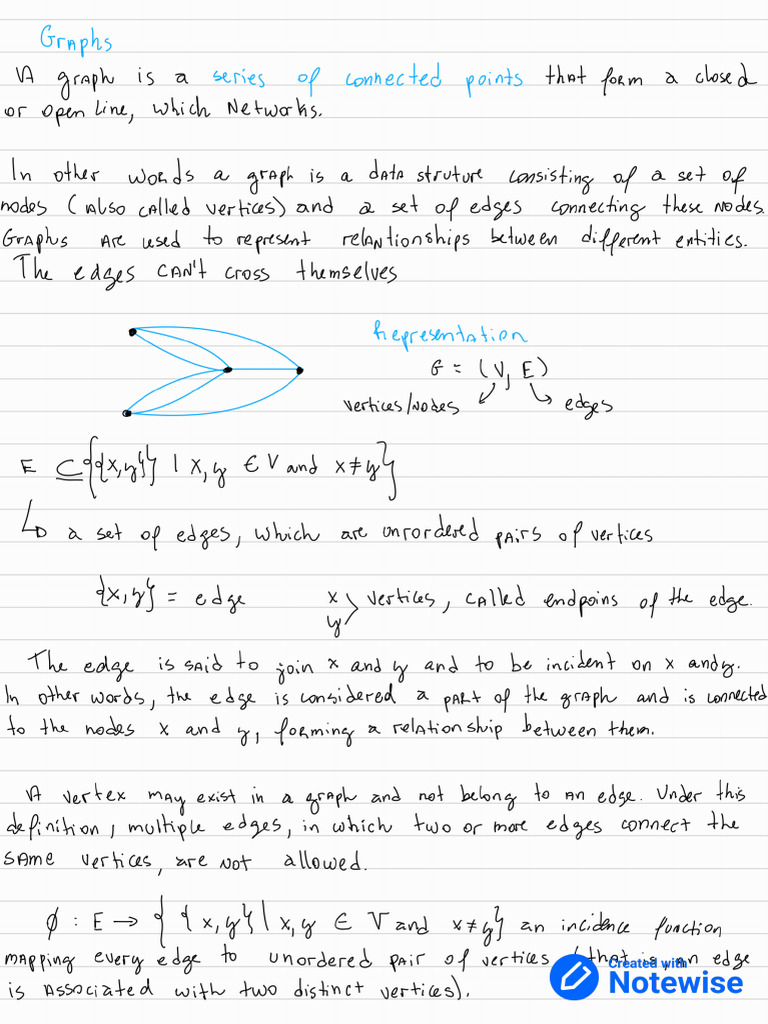 Graphs
A graph is a series of connected points that form a closed
or open line, which Networks.
In other words a graph is a data struture consisting of a set of
nodes (also called vertices) and a set of edges connecting these nodes.
Graphs are used to represent relantionships between different entities.
The edges can't cross themselves
Representation
G = (V, E)
vertices/nodes edges
E ⊆ {{x,y}} | x,y ∈ V and x≠y}
↳ a set of edges, which are unrordered pairs of vertices
{x,y} = edge x y > vertices, called endpoins of the edge.
The edge is said to join x and y and to be incident on x and y.
In other words, the edge is considered a part of the graph and is connected
to the nodes x and y, forming a relationship between them.
A vertex may exist in a graph and not belong to an edge. Under this
definition, multiple edges, in which two or more edges connect the
same vertices, are not allowed.
ϕ : E → { {x,y} | x,y ∈ V and x≠y} an incidence function
mapping every edge to unordered pair of vertices (that is, an edge
is associated with two distinct vertices).
Created with
Notewise